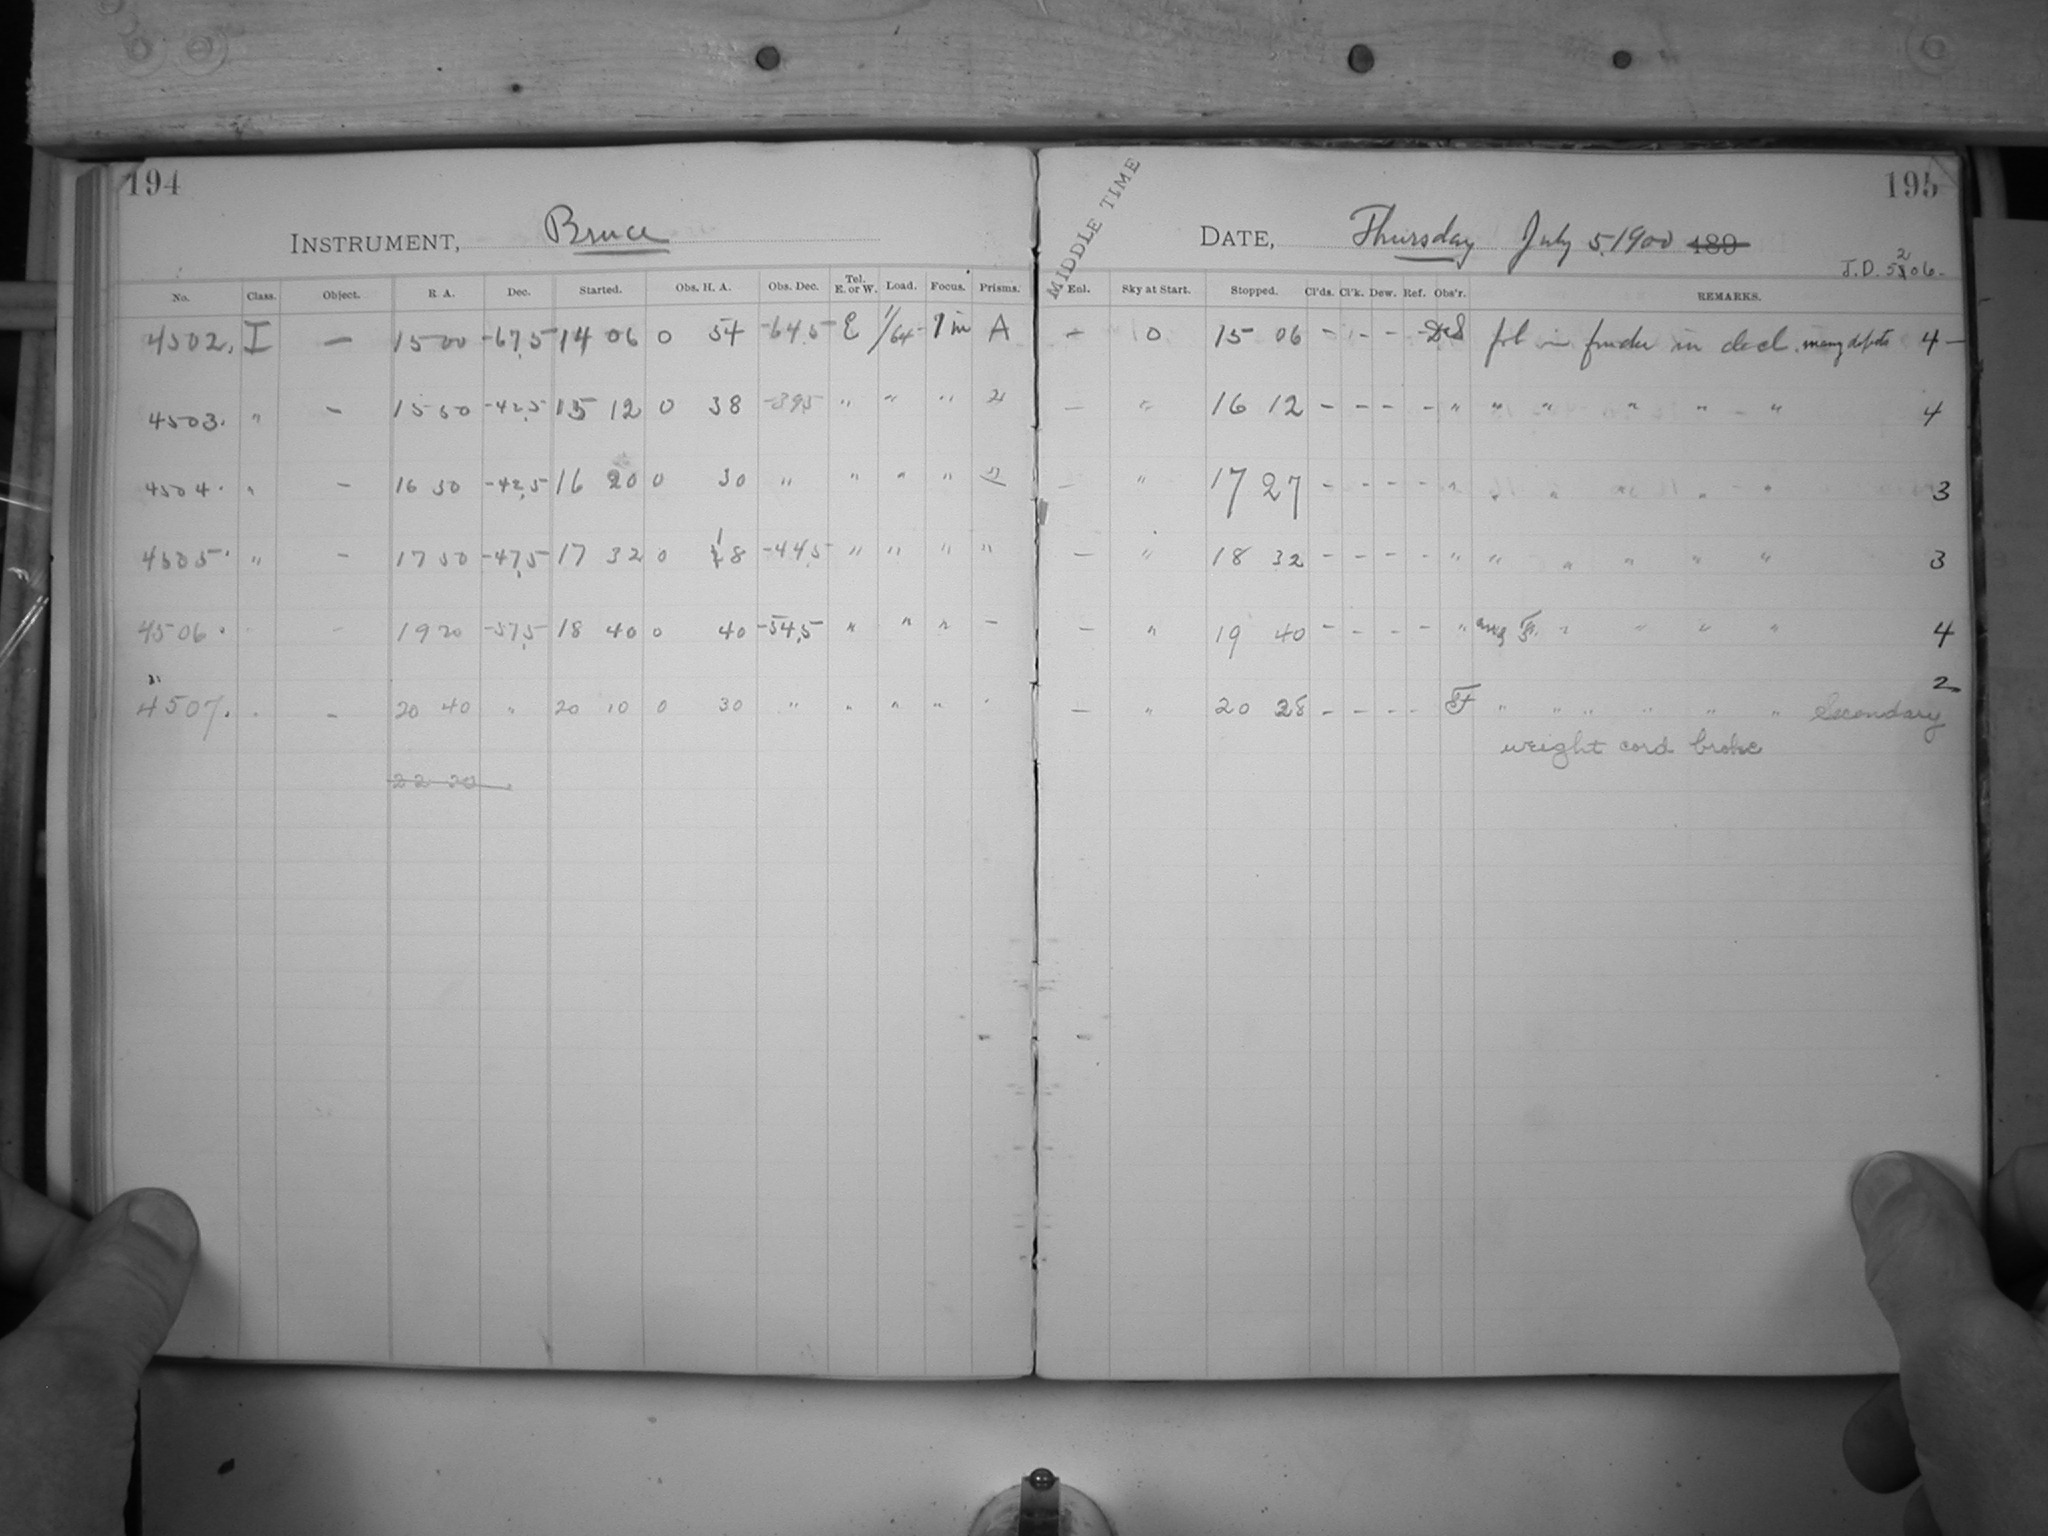 194
INSTRUMENT, Bruce
No. Class. Object. R A. Dec. Started. Obs. H. A. Obs. Dec. Tel. E. or W. Load. Focus. Prisms.
4502. I — 15 00 -67,5 14 06 0 54 -64,5 E 1/64 A
4503. " — 15 50 -42,5 15 12 0 38 -39,5 " " "
4504. " — 16 50 -42,5 16 20 0 30 " " " " "
4505. " — 17 50 -47,5 17 32 0 18 -44,5 " " " "
4506. - 19 20 -57,5 18 40 0 40 -54,5 " " " —
4507. — 20 40 " 20 10 0 30 " " " "
22 20
195
MIDDLE TIME
DATE, Thursday July 5, 1900 189
J.D. 5206.
Eol. Sky at Start. Stopped. Cl'ds. Cl'k. Dew. Ref. Obs'r. REMARKS.
— 0 15 06 - - - - DeS fol in finder in decl. many defects 4
— " 16 12 - - - - " " " " " " 4
— " 17 27 - - - - " " " " " " 3
— " 18 32 - - - - " " " " " " 3
— " 19 40 - - - - " " " " " 4
— " 20 28 - - - - " " " " " " Secondary 2
weight cord broke